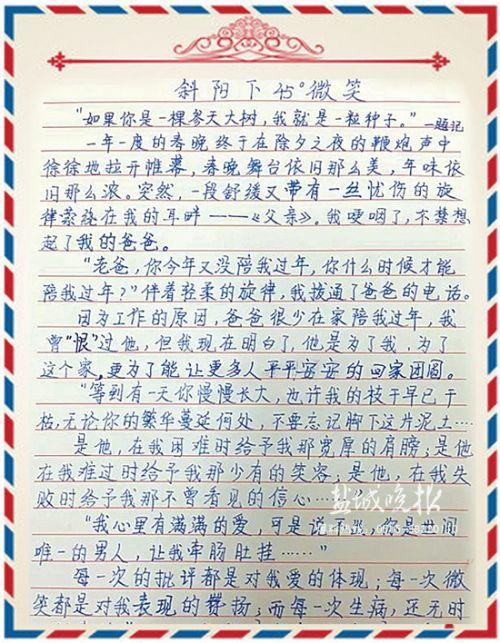 斜阳下45°微笑
“如果你是一棵参天大树,我就是一粒种子。”—题记
一年一度的春晚终于在除夕之夜的鞭炮声中
徐徐地拉开帷幕,春晚舞台依旧那么美,年味依
旧那么浓。突然,一段舒缓又带有一丝忧伤的旋
律萦绕在我的耳畔——《父亲》。我哽咽了,不禁想
起了我的爸爸。
“老爸,你今年又没陪我过年,你什么时候才能
陪我过年?”伴着轻柔的旋律,我拨通了爸爸的电话。
因为工作的原因,爸爸很少在家陪我过年,我
曾“恨”过他,但我现在明白了,他是为了我,为了
这个家,更为了能让更多人平平安安的回家团圆。
“等到有一天你慢慢长大,也许我的枝干早已干
枯,无论你的繁华蔓延何处,不要忘记脚下这片泥土……
是他,在我困难时给予我那宽厚的肩膀;是他
在我难过时给予我那少有的笑容;是他,在我失
败时给予我那不曾看见的信心……
盐城晚报
“我心里有满满的爱,可是说不出,你是世间
唯一的男人,让我牵肠肚挂……”
每一次的批评都是对我爱的体现;每一次微
笑都是对我表现的赞扬;而每一次生病,还无时